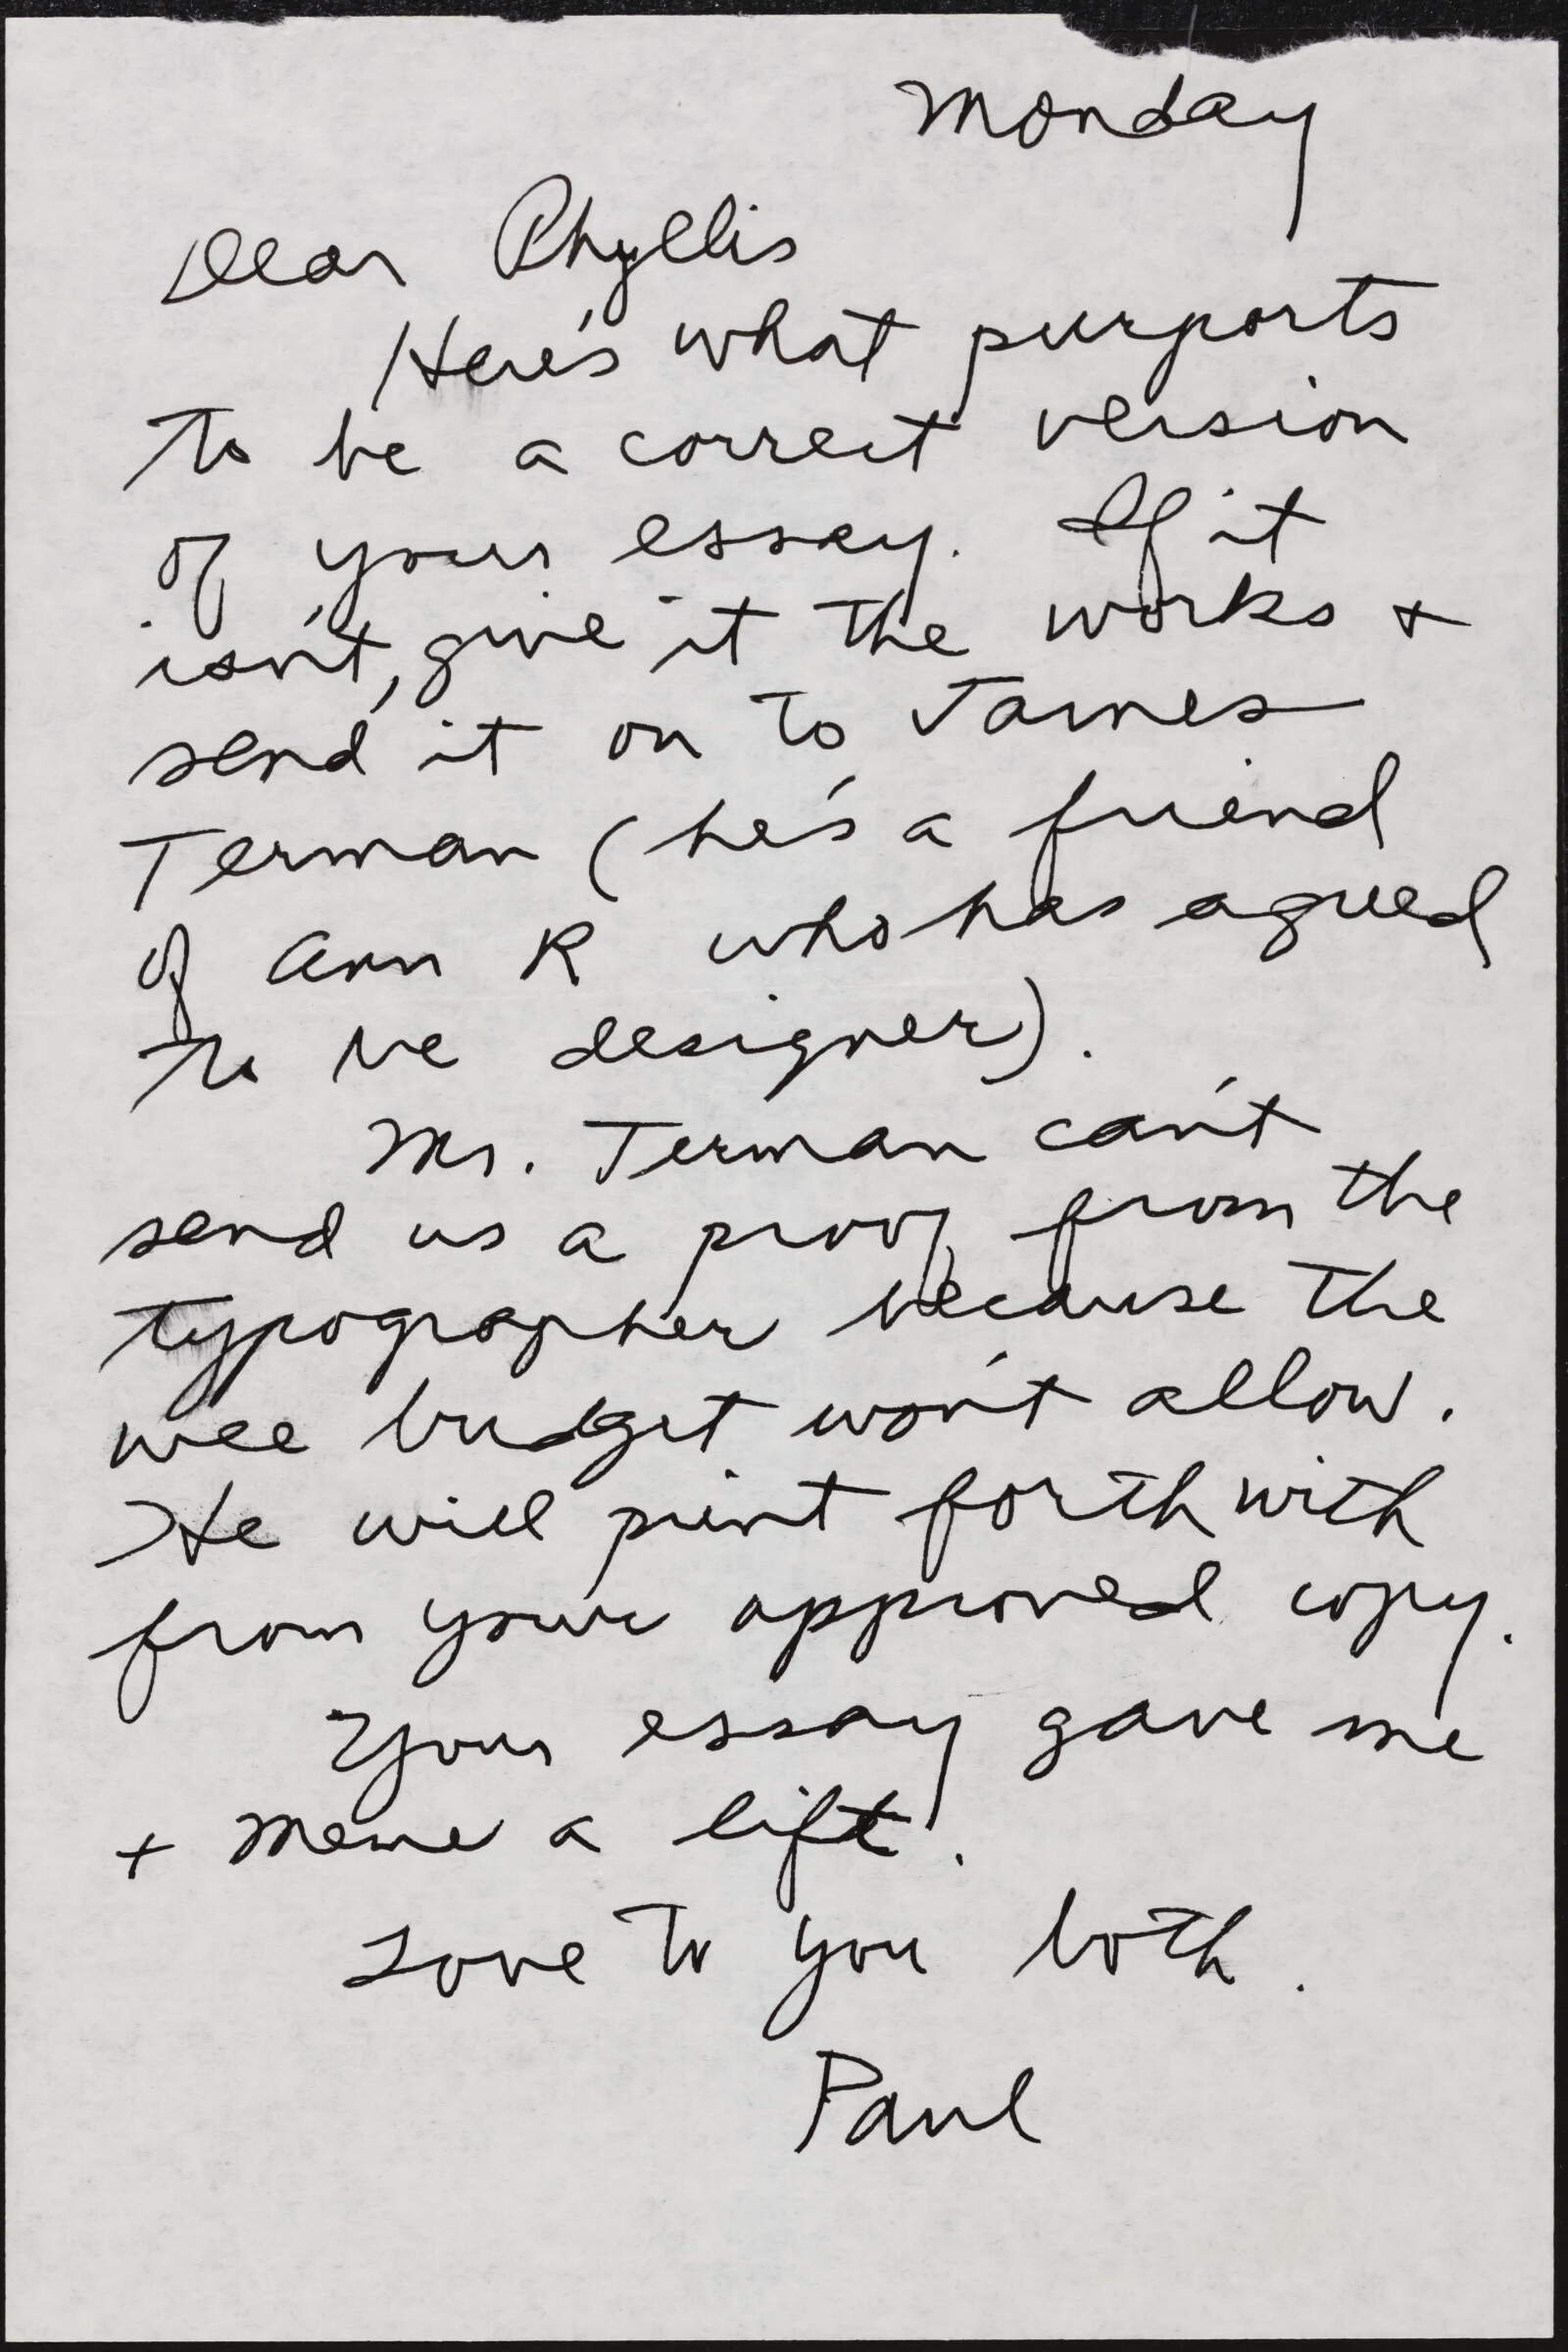 Monday
Dear Phyllis
Here's what purports
to be a correct version
of your essay. If it
isn't, give it the works +
send it on to James
Terman (he's a friend
of Ann R who has agreed
to be designer).
Mr. Terman can't
send us a proof from the
typographer because the
wee budget won't allow.
He will print forthwith
from your approved copy.
Your essay gave me
+ a lift.
Love to you both.
Paul